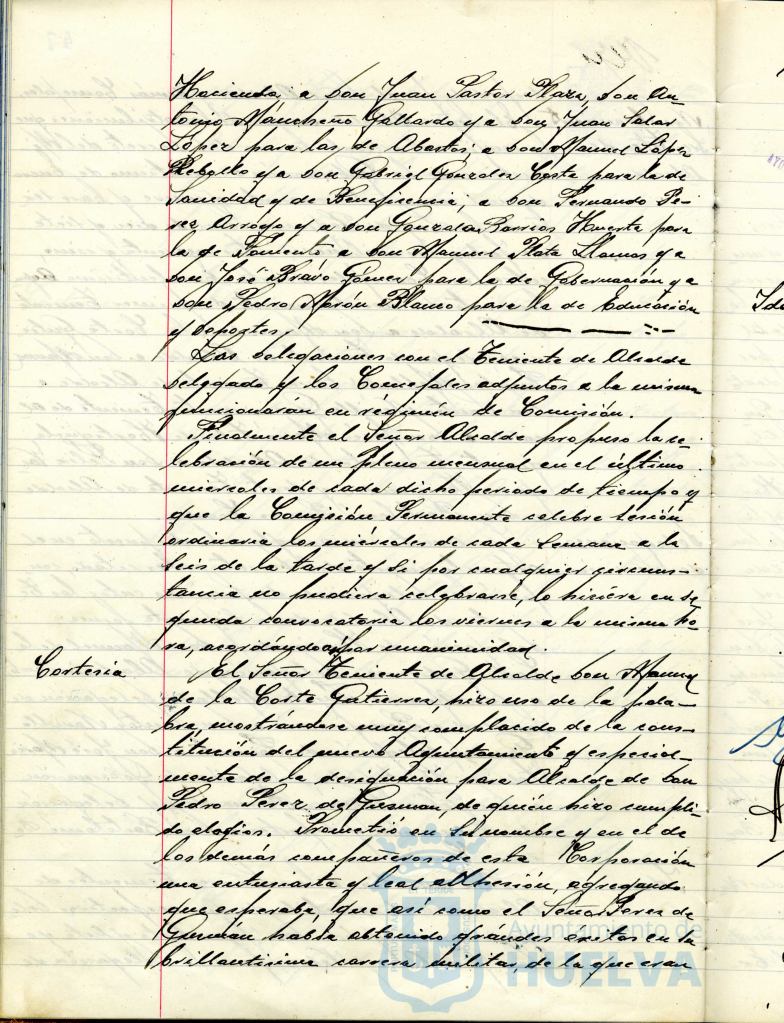 Hacienda; a Don Juan Pastor Plaza, Don An-
tonio Mancheño Gallardo y a Don Juan Salar
López para las de Abastos; a Don Manuel López
Rebollo y a Don Gabriel Gonzalez Costa para la de
Sanidad y de Beneficencia; a Don Fernando Pe-
rez Arroyo y a Don Gonzalo Barrios Huerta para
la de Fomento a Don Manuel Plata Llamas y a
Don José Bravo Gómez para la de Gobernación y a
Don Pedro Morón Blanco para la de Educación
y Deportes,
Las Delegaciones con el Teniente de Alcalde
Delegado y los Concejales adjuntos a la misma
funcionarán en régimen de Comisión.
Finalmente el Señor Alcalde propuso la ce-
lebración de un pleno mensual en el último
miércoles de cada dicho periodo de tiempo y
que la Comisión Permanente celebre sesión
ordinaria los miércoles de cada semana a la
seis de la tarde y si por cualquier circuns-
tancia no pudiera celebrarse, lo hiciera en se-
gunda convocatoria los viernes a la misma ho-
ra, acordándose por unanimidad.
Cortesia
El Señor Teniente de Alcalde Don Manuel
de la Corte Gutierrez, hizo uso de la pala-
bra, mostrándose muy complacido de la cons-
titución del nuevo Ayuntamiento y especial-
mente de la designación para Alcalde de Don
Pedro Perez de Guzman, de quién hizo cumpli-
do elogios. Prometió en su nombre y en el de
los demás compañeros de esta Corporación
una entusiasta y leal adhesión, agregando
que esperaba, que así como el Señor Perez de
Guzmán había obtenido grandes exitos en su
brillantisima carrera militar, de la que eran
Ayuntamiento de
HUELVA